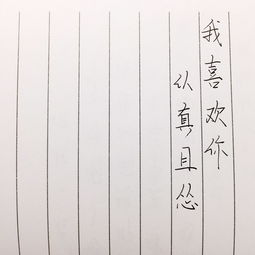 我喜欢你
认真且怂